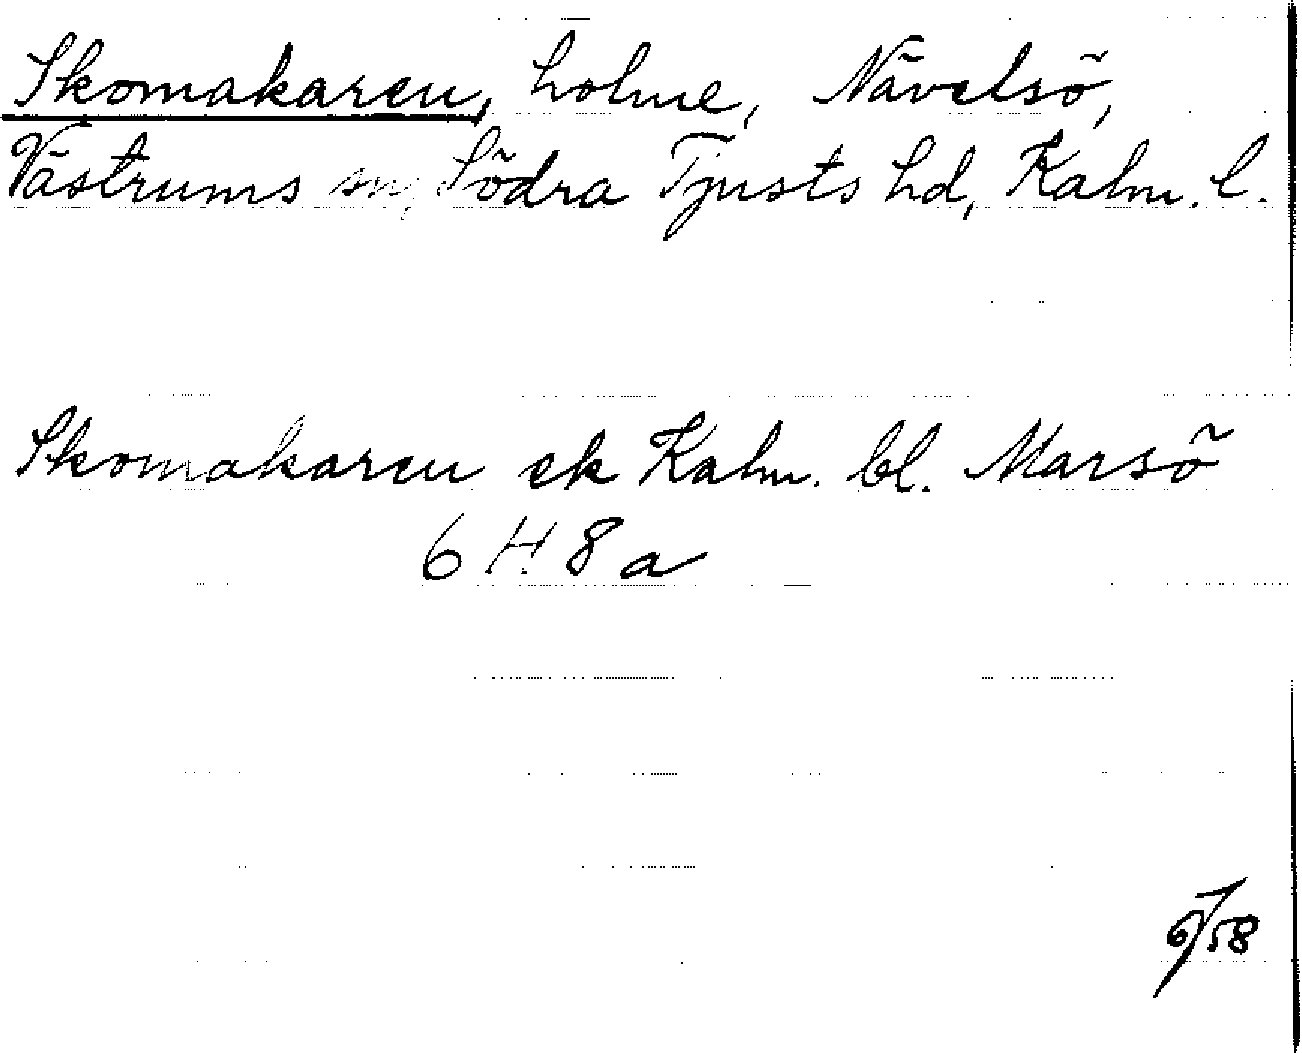 Skomakaren, holme, Nävelsö,
Västrums sn, Södra Tjusts hd, Kalm. l.
Skomakaren ek Kalm. bl. Marsö
6 H 8 a
6/58